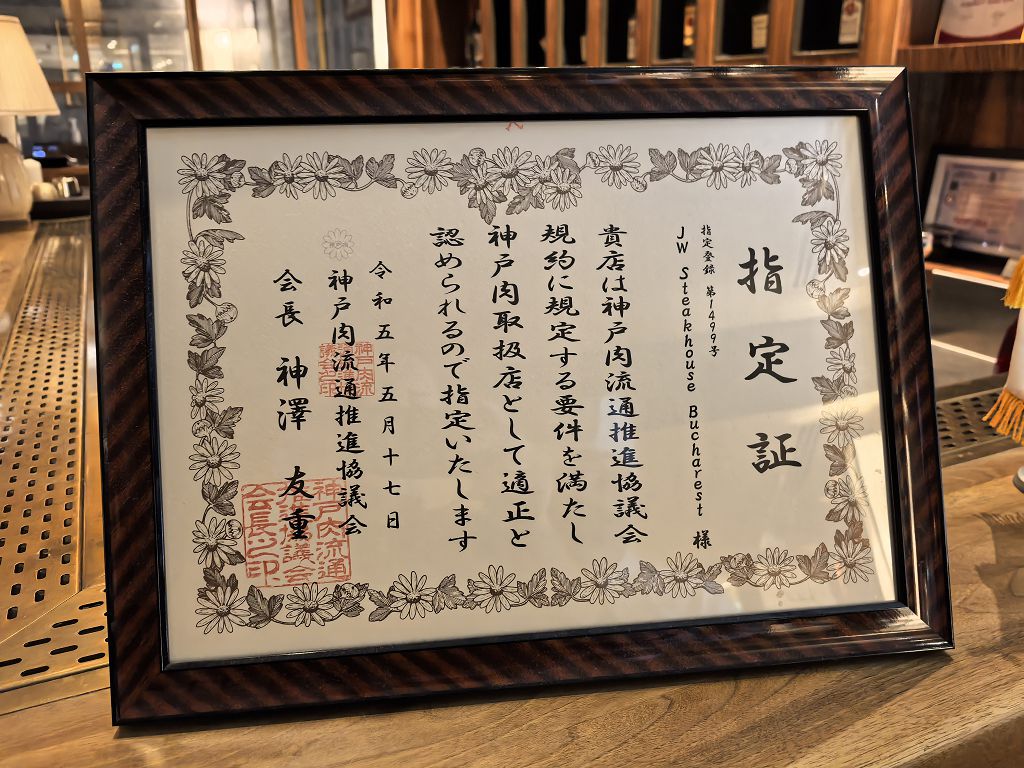 指定証
指定登録 第1499号
JW Steakhouse Bucharest 様
貴店は神戸肉流通推進協議会
規約に規定する要件を満たし
神戸肉取扱店として適正と
認められるので指定いたします
令和五年五月十七日
神戸肉流通推進協議会
会長 神澤 友重
神戸肉流通
推進協議会
会長之印